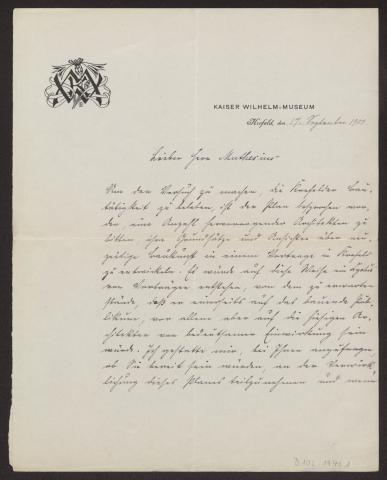 KAISER WILHELM-MUSEUM
Krefeld, den 17. September 1909
Lieber Herr Muthesius
Um den Versuch zu machen, die Krefelder Bau-
tätigkeit zu beleben, ist der Plan besprochen wor-
den eine Anzahl hervorragender Architekten zu
bitten, ihre Grundsätze und Ansichten über neu-
zeitige Baukunst in einem Vortrage in Krefeld
zu entwickeln. Es würde auf diese Weise ein Zyklus
von Vorträgen entstehen, von dem zu erwarten
stünde, daß er einerseits auf das bauende Pub-
likum, vor allem aber auf die hiesigen Ar-
chitekten von bedeutsamer Einwirkung sein
würde. Ich gestatte mir, bei Ihnen anzufragen,
ob Sie bereit sein würden, an der Verwirk-
lichung dieses Planes teilzunehmen und wenn